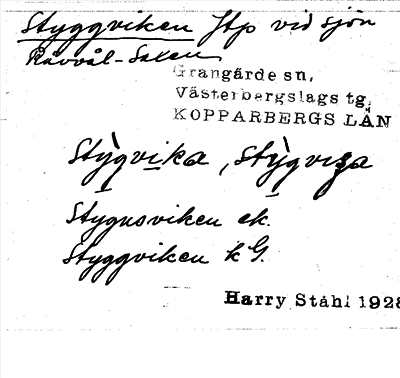 Styggviken ltp vid sjön
Råvvål-Saxen
Grangärde sn,
Västerbergslags tg,
KOPPARBERGS LÄN
Stỳgvika, Stỳgviga
Stygnsviken ek.
Styggviken k G.
Harry Ståhl 1928